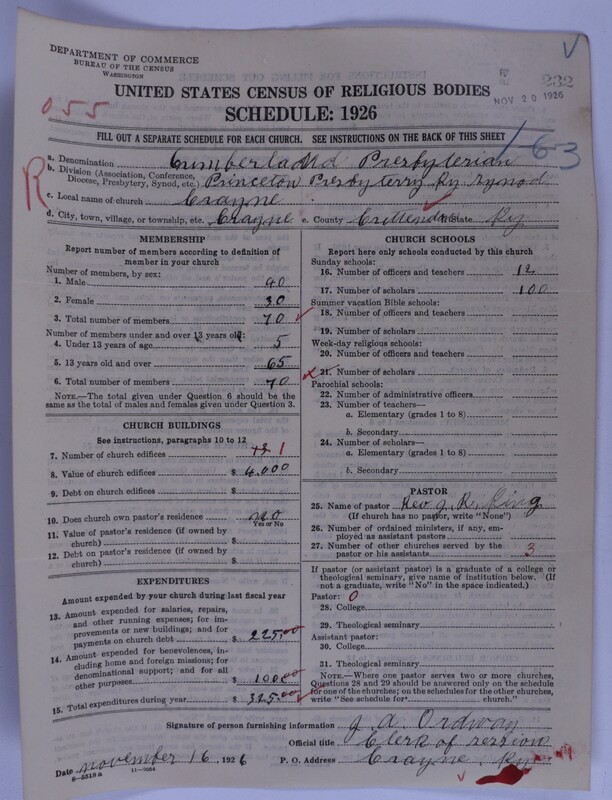 DEPARTMENT OF COMMERCE
BUREAU OF THE CENSUS
WASHINGTON
232
NOV 20 1926
UNITED STATES CENSUS OF RELIGIOUS BODIES
SCHEDULE: 1926
055
FILL OUT A SEPARATE SCHEDULE FOR EACH CHURCH. SEE INSTRUCTIONS ON THE BACK OF THIS SHEET
1-63
R
a. Denomination Cumberland Presbyterian
b. Division (Association, Conference, Diocese, Presbytery, Synod, etc.) Princeton Presbyterry Ky. Synod
c. Local name of church Crayne
d. City, town, village, or township, etc. Crayne e. County Crittenden State Ky
MEMBERSHIP
Report number of members according to definition of
member in your church
Number of members, by sex:
1. Male 40
2. Female 30
3. Total number of members 70
Number of members under and over 13 years old:
4. Under 13 years of age 5
5. 13 years old and over 65
6. Total number of members 70
NOTE.—The total given under Question 6 should be the
same as the total of males and females given under Question 3.
CHURCH BUILDINGS
See instructions, paragraphs 10 to 12
7. Number of church edifices 1
8. Value of church edifices $ 4.000
9. Debt on church edifices $
10. Does church own pastor's residence no
Yes or No
11. Value of pastor's residence (if owned by
church) $
12. Debt on pastor's residence (if owned by
church) $
EXPENDITURES
Amount expended by your church during last fiscal year
13. Amount expended for salaries, repairs,
and other running expenses; for im-
provements or new buildings; and for
payments on church debt $ 225.00
14. Amount expended for benevolences, in-
cluding home and foreign missions; for
denominational support; and for all
other purposes $ 100.00
15. Total expenditures during year $ 325.00
CHURCH SCHOOLS
Report here only schools conducted by this church
Sunday schools:
16. Number of officers and teachers 12
17. Number of scholars 100
Summer vacation Bible schools:
18. Number of officers and teachers
19. Number of scholars
Week-day religious schools:
20. Number of officers and teachers
21. Number of scholars
Parochial schools:
22. Number of administrative officers
23. Number of teachers—
a. Elementary (grades 1 to 8)
b. Secondary
24. Number of scholars—
a. Elementary (grades 1 to 8)
b. Secondary
PASTOR
25. Name of pastor Rev J. R. King
(If church has no pastor, write "None")
26. Number of ordained ministers, if any, em-
ployed as assistant pastors
27. Number of other churches served by the
pastor or his assistants 3
If pastor (or assistant pastor) is a graduate of a college or
theological seminary, give name of institution below. (If
not a graduate, write "No" in the space indicated.)
Pastor: 0
28. College
29. Theological seminary
Assistant pastor:
30. College
31. Theological seminary
NOTE.—Where one pastor serves two or more churches,
Questions 28 and 29 should be answered only on the schedule
for one of the churches; on the schedules for the other churches,
write "See schedule for church."
Signature of person furnishing information J A Ordway
Official title Clerk of session
Date november 16, 1926 P. O. Address Crayne Ky
8-5518a 11-9084